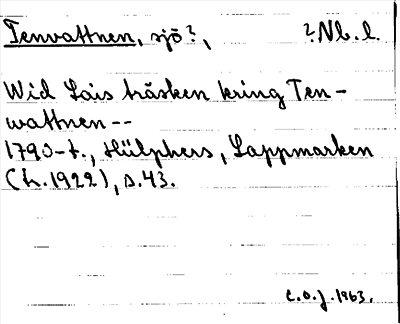 Tenvattnen, sjö?, ?Nb. l.
Wid Lais träsken kring Ten-
wattnen--
1790-t., Hülphers, Lappmarken
(h. 1922), s. 43.
C.O.J. 1963.